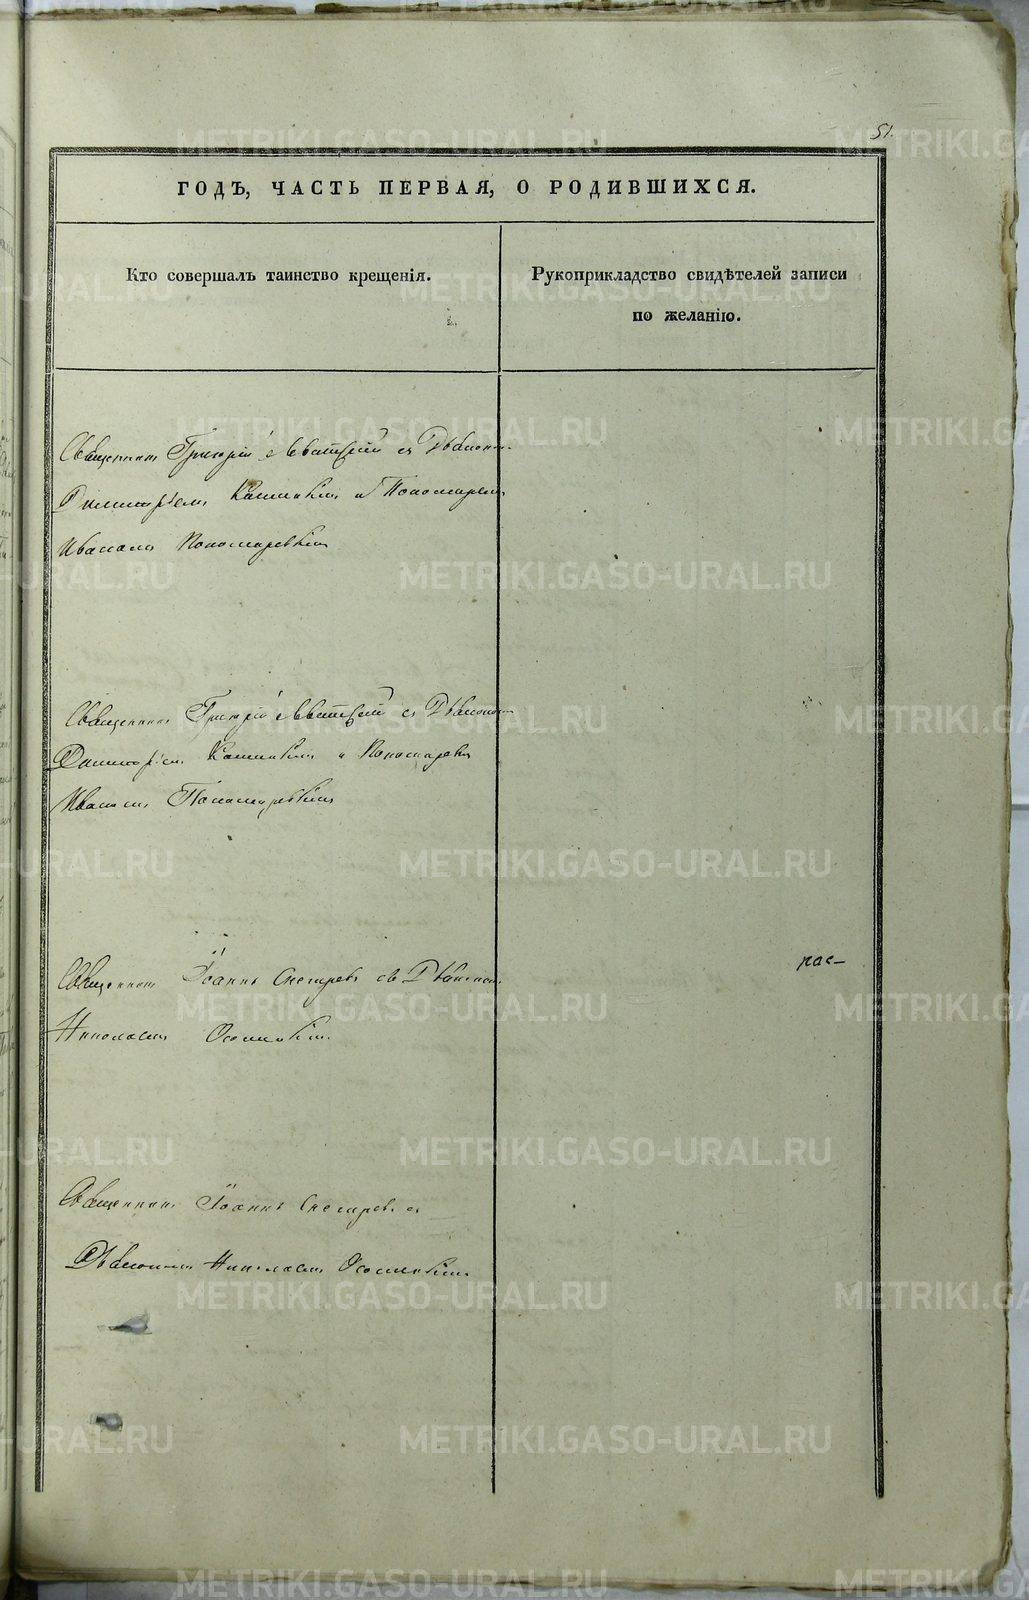 51.
ГОДЪ, ЧАСТЬ ПЕРВАЯ, О РОДИВШИХСЯ.
Кто совершалъ таинство крещенія.
Рукоприкладство свидѣтелей записи
по желанію.
Священникъ Григорій съ Дьякономъ
Димитріемъ и Пономаремъ
Иваномъ Пономаревымъ
Священникъ Григорій съ Дьякономъ
Димитріемъ и Пономаремъ
Иваномъ Пономаревымъ
Священникъ Іоаннъ Снегиревъ съ Дьякономъ
рас-
Николаемъ
Священникъ Іоаннъ Снегиревъ съ
Дьякономъ Николаемъ
METRIKI.GASO-URAL.RU